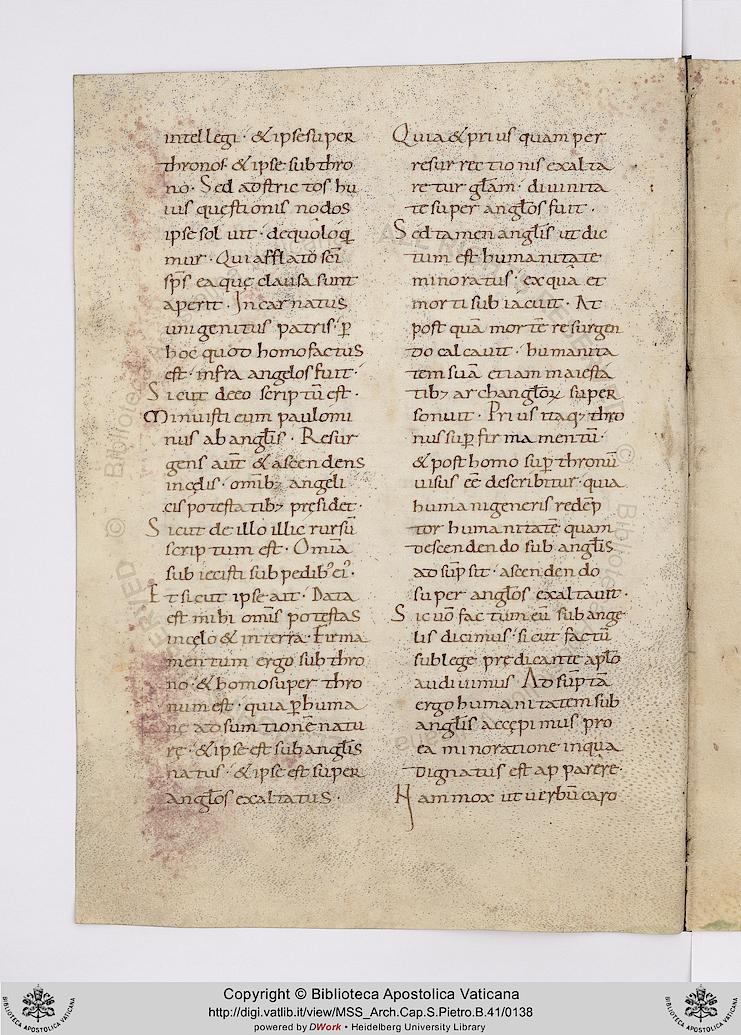 intellegi · & ipse super
thronos · & ipse sub thro
no · Sed adstrictos hu
ius quęstionis nodos
ipse soluit · de quo loq̅
mur · Qui afflato sc̅i
sp̅s ea quę clausa sunt
aperit · Incarnatus
unigenitus patris · ꝑ
hoc quod homo factus
est · infra angelos fuit ·
Sicut de eo scriptū est ·
Minuisti eum paulomi
nus ab angl̅is · Resur
gens aut̅ & ascendens
in cęlis · omībꝫ angeli
cis potestatibꝫ pręsidet ·
Sicut de illo illic rursū
scriptum est · Omīa
subiecisti sub pedibꝰ eiꝰ ·
Et sicut ipse ait · Data
est mihi omīs potestas
in cęlo & in terra · Firma
mentum ergo sub thro
no · & homo super thro
num est · quia ꝑ huma
nę adsumtionē natu
rę · & ipse est sub angl̅is
natus · & ipse est super
angl̅os exaltatus ·
Quia & prius quam per
resurrectionis exalta
retur gl̅am · diuinita
te super angl̅os fuit ·
Sed tamen angl̅is ut dic
tum est humanitate
minoratus · ex qua et
morti subiacuit · At
post quā mortē resurgen
do calcauit · humanita
tem suā etiam maiesta
tibꝫ archangl̅oꝝ super
sonuit · Prius itaqꝫ thro
nus suꝑ firmamentū ·
& post homo suꝑ thronū
uisus eē describitur · quia
humani generis redēp
tor humanitatē quam
descendendo sub angl̅is
adsūpsit · ascendendo
super angl̅os exaltauit ·
Sic uō factum eū sub ange
lis dicimus · sicut factū
sub lege prędicante apl̅o
audiuimus · Adsūptā
ergo humanitatem sub
angl̅is accępimus pro
ea minoratione in qua
dignatus est apparere ·
Nam mox ut uerbū caro
Copyright © Biblioteca Apostolica Vaticana
http://digi.vatlib.it/view/MSS_Arch.Cap.S.Pietro.B.41/0138
powered by DWork · Heidelberg University Library